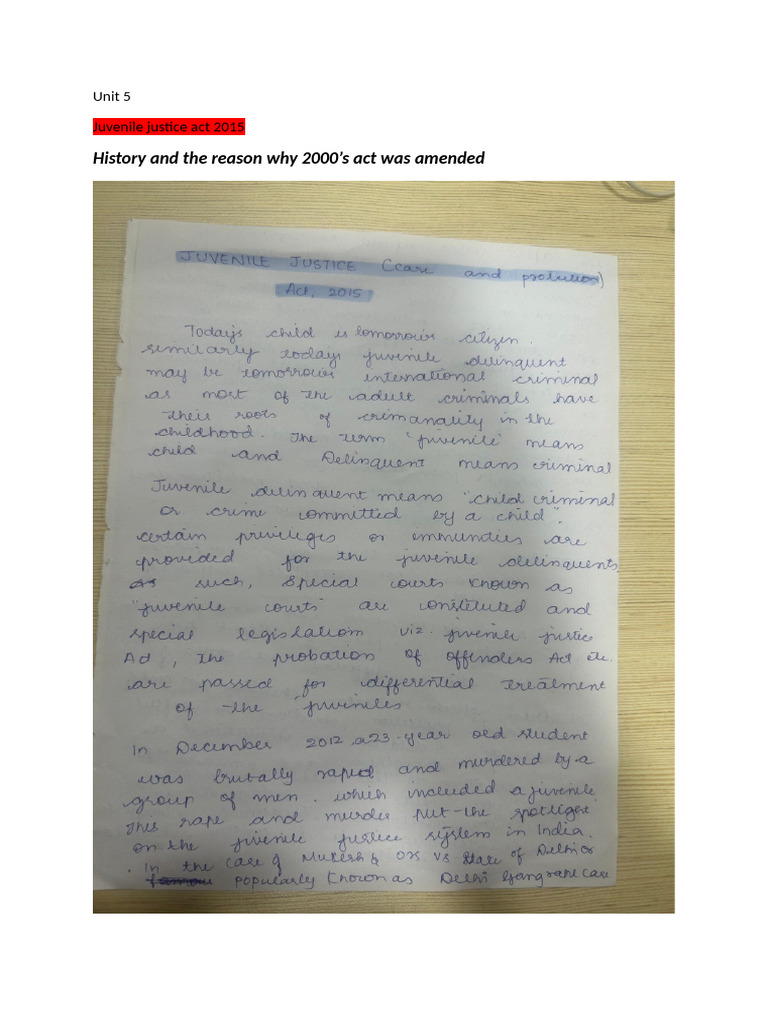 Unit 5
Juvenile justice act 2015
History and the reason why 2000's act was amended
JUVENILE JUSTICE (care and protection)
Act, 2015
Today's child is tomorrow's citizen.
similarly today's juvenile delinquent
may be tomorrow's international criminal
as most of the adult criminals have
their roots of crimanality in the
childhood. The term 'juvenile' means
child and Delinquent means criminal
Juvenile delinquent means "child criminal
or crime committed by a child".
certain privileges or immunities are
provided for the juvenile delinquents.
As such, special courts known as
"juvenile courts" are constituted and
special legislation viz. juvenile justice
Act, the probation of offenders Act etc.
are passed for differential treatment
of the juveniles
In December 2012, a 23-year old student
was brutally raped and murdered by a
group of men. which included a juvenile
This rape and murder put the spotlight
on the juvenile justice system in India.
. In the case of Mukesh & ors vs state of Delhi or
popularly known as Delhi Gangrape case